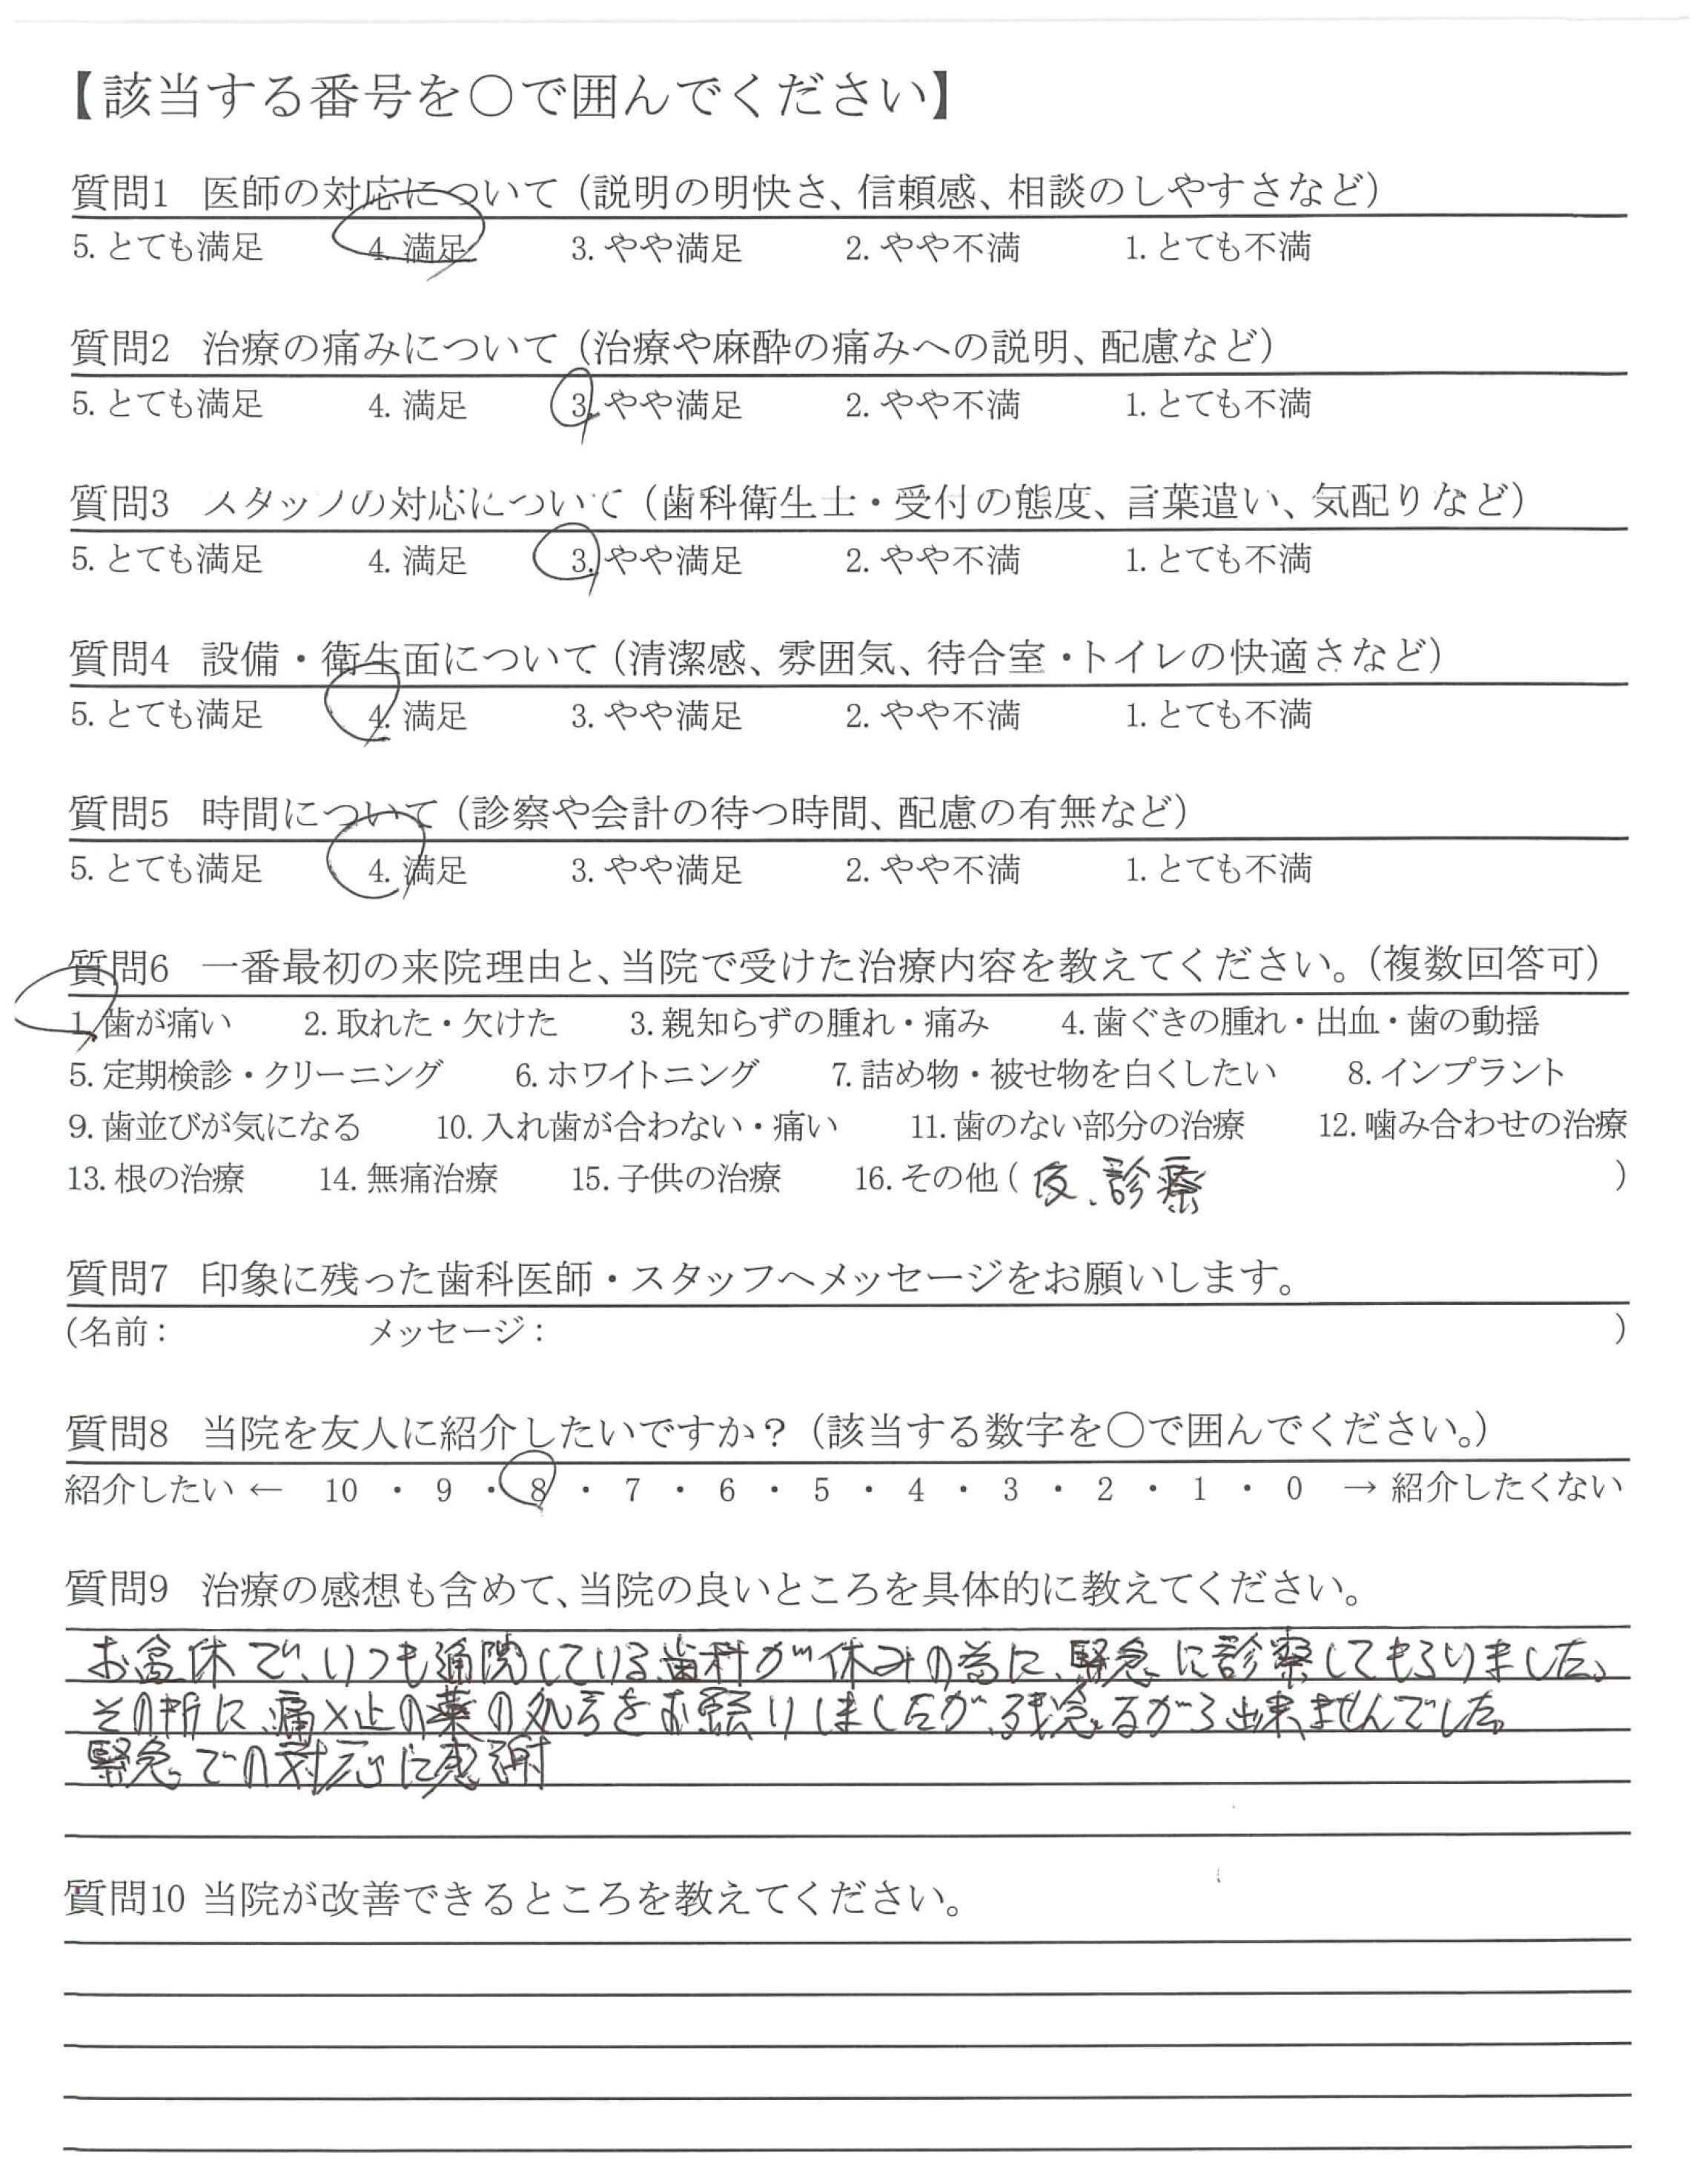 【該当する番号を○で囲んでください】
質問1 医師の対応について（説明の明快さ、信頼感、相談のしやすさなど）
5. とても満足 4. 満足 3. やや満足 2. やや不満 1. とても不満
質問2 治療の痛みについて（治療や麻酔の痛みへの説明、配慮など）
5. とても満足 4. 満足 3. やや満足 2. やや不満 1. とても不満
質問3 スタッフの対応について（歯科衛生士・受付の態度、言葉遣い、気配りなど）
5. とても満足 4. 満足 3. やや満足 2. やや不満 1. とても不満
質問4 設備・衛生面について（清潔感、雰囲気、待合室・トイレの快適さなど）
5. とても満足 4. 満足 3. やや満足 2. やや不満 1. とても不満
質問5 時間について（診察や会計の待つ時間、配慮の有無など）
5. とても満足 4. 満足 3. やや満足 2. やや不満 1. とても不満
質問6 一番最初の来院理由と、当院で受けた治療内容を教えてください。（複数回答可）
1. 歯が痛い 2. 取れた・欠けた 3. 親知らずの腫れ・痛み 4. 歯ぐきの腫れ・出血・歯の動揺
5. 定期検診・クリーニング 6. ホワイトニング 7. 詰め物・被せ物を白くしたい 8. インプラント
9. 歯並びが気になる 10. 入れ歯が合わない・痛い 11. 歯のない部分の治療 12. 噛み合わせの治療
13. 根の治療 14. 無痛治療 15. 子供の治療 16. その他（ 診療 ）
質問7 印象に残った歯科医師・スタッフへメッセージをお願いします。
（名前： メッセージ： ）
質問8 当院を友人に紹介したいですか？（該当する数字を○で囲んでください。）
紹介したい ← 10 ・ 9 ・ 8 ・ 7 ・ 6 ・ 5 ・ 4 ・ 3 ・ 2 ・ 1 ・ 0 → 紹介したくない
質問9 治療の感想も含めて、当院の良いところを具体的に教えてください。
お盆休で、いつも通院している歯科が休みの為に、緊急に診察してもらいました。
その折に、痛メ止の薬の処方をお願いしましたが、残念ながら出来ませんでした
緊急での対応に感謝
質問10 当院が改善できるところを教えてください。